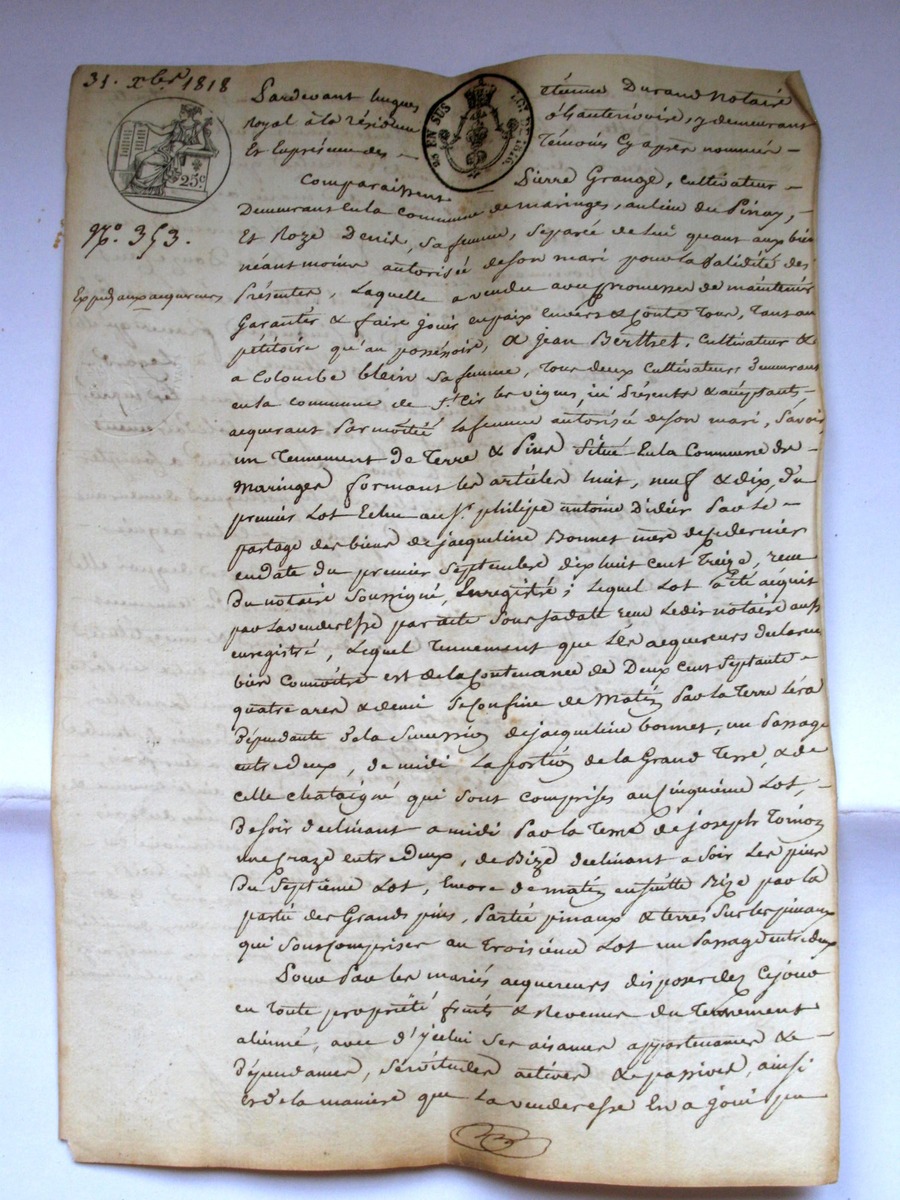 31. xbre 1818
Pardevant hugues Étienne Durand Notaire
royal à la résidence d'hauterivoire, y demeurant
Et En présence des Témoins Cy après nommés
25 EN SUS
LOI DE 1816.
25 c
Comparaissent Pierre Grange, Cultivateur
Demeurant En la Commune de maringes, au lieu du Pinay,
N.o 353.
Et Roze Denis, sa femme, séparée de lui quant aux biens
néantmoins autorisée de son mari pour la validité des
Exped. aux acquereurs
Présentes, Laquelle a vendu avec promesses de maintenir
Garantir & faire jouir en paix envers & Contre Tous, Tant au
pétitoire qu'au possessoir, à jean Berthet, Cultivateur &
a Colombe blein sa femme, Tous deux Cultivateurs demeurant
en la commune de St. Cir les vignes, ici Présents & acceptants,
acquerant Par moitié la femme autorisée de son mari, Savoir
un Tennement de Terre & Pins Situé En la Commune de
Maringes formant les articles huit, neuf & dix, du
premier Lot Echu au Sr. philipe antoine Didier Par Le
partage des biens de jacqueline Bonnet mere de ce dernier
en date du premier Septembre dix huit cent Treize, reçu
du notaire Soussigné, Enregistré; Lequel Lot a été acquit
par La venderesse par acte Sous sa datte reçu Ledit notaire aussi
enregistré, Lequel Tennement que Les acquereurs declarent
bien Connoître est de la Contenance de Deux cent Septante
quatre ares & demi Se Confine de Matin Par la Terre
dépendante de la Succession de jacqueline bonnet, un Passage
entre deux, de midi La portion de la Grand Terre, & de
celle chataigné qui sont comprises au Cinquième Lot,
de soir declinant a midi Par la Terre de joseph
une Craze entre deux, de Bize declinant a soir Les pins
du Septième Lot, Encore de matin ensuitte Bize par la
partie des Grands pins, Partie pinaux & terres Sur les pinaux
qui sont Comprises au Troisième Lot un Passage entre deux
Pour Par les mariés acquereurs disposer des Cejour
en Toute propriété fruits & Revenus du Tennement
aliénné, avec d'ycelui Ses aisances appartenances &
Dépendances, Servitudes actives & passives, ainsi
et de la maniere que La venderesse En a joui